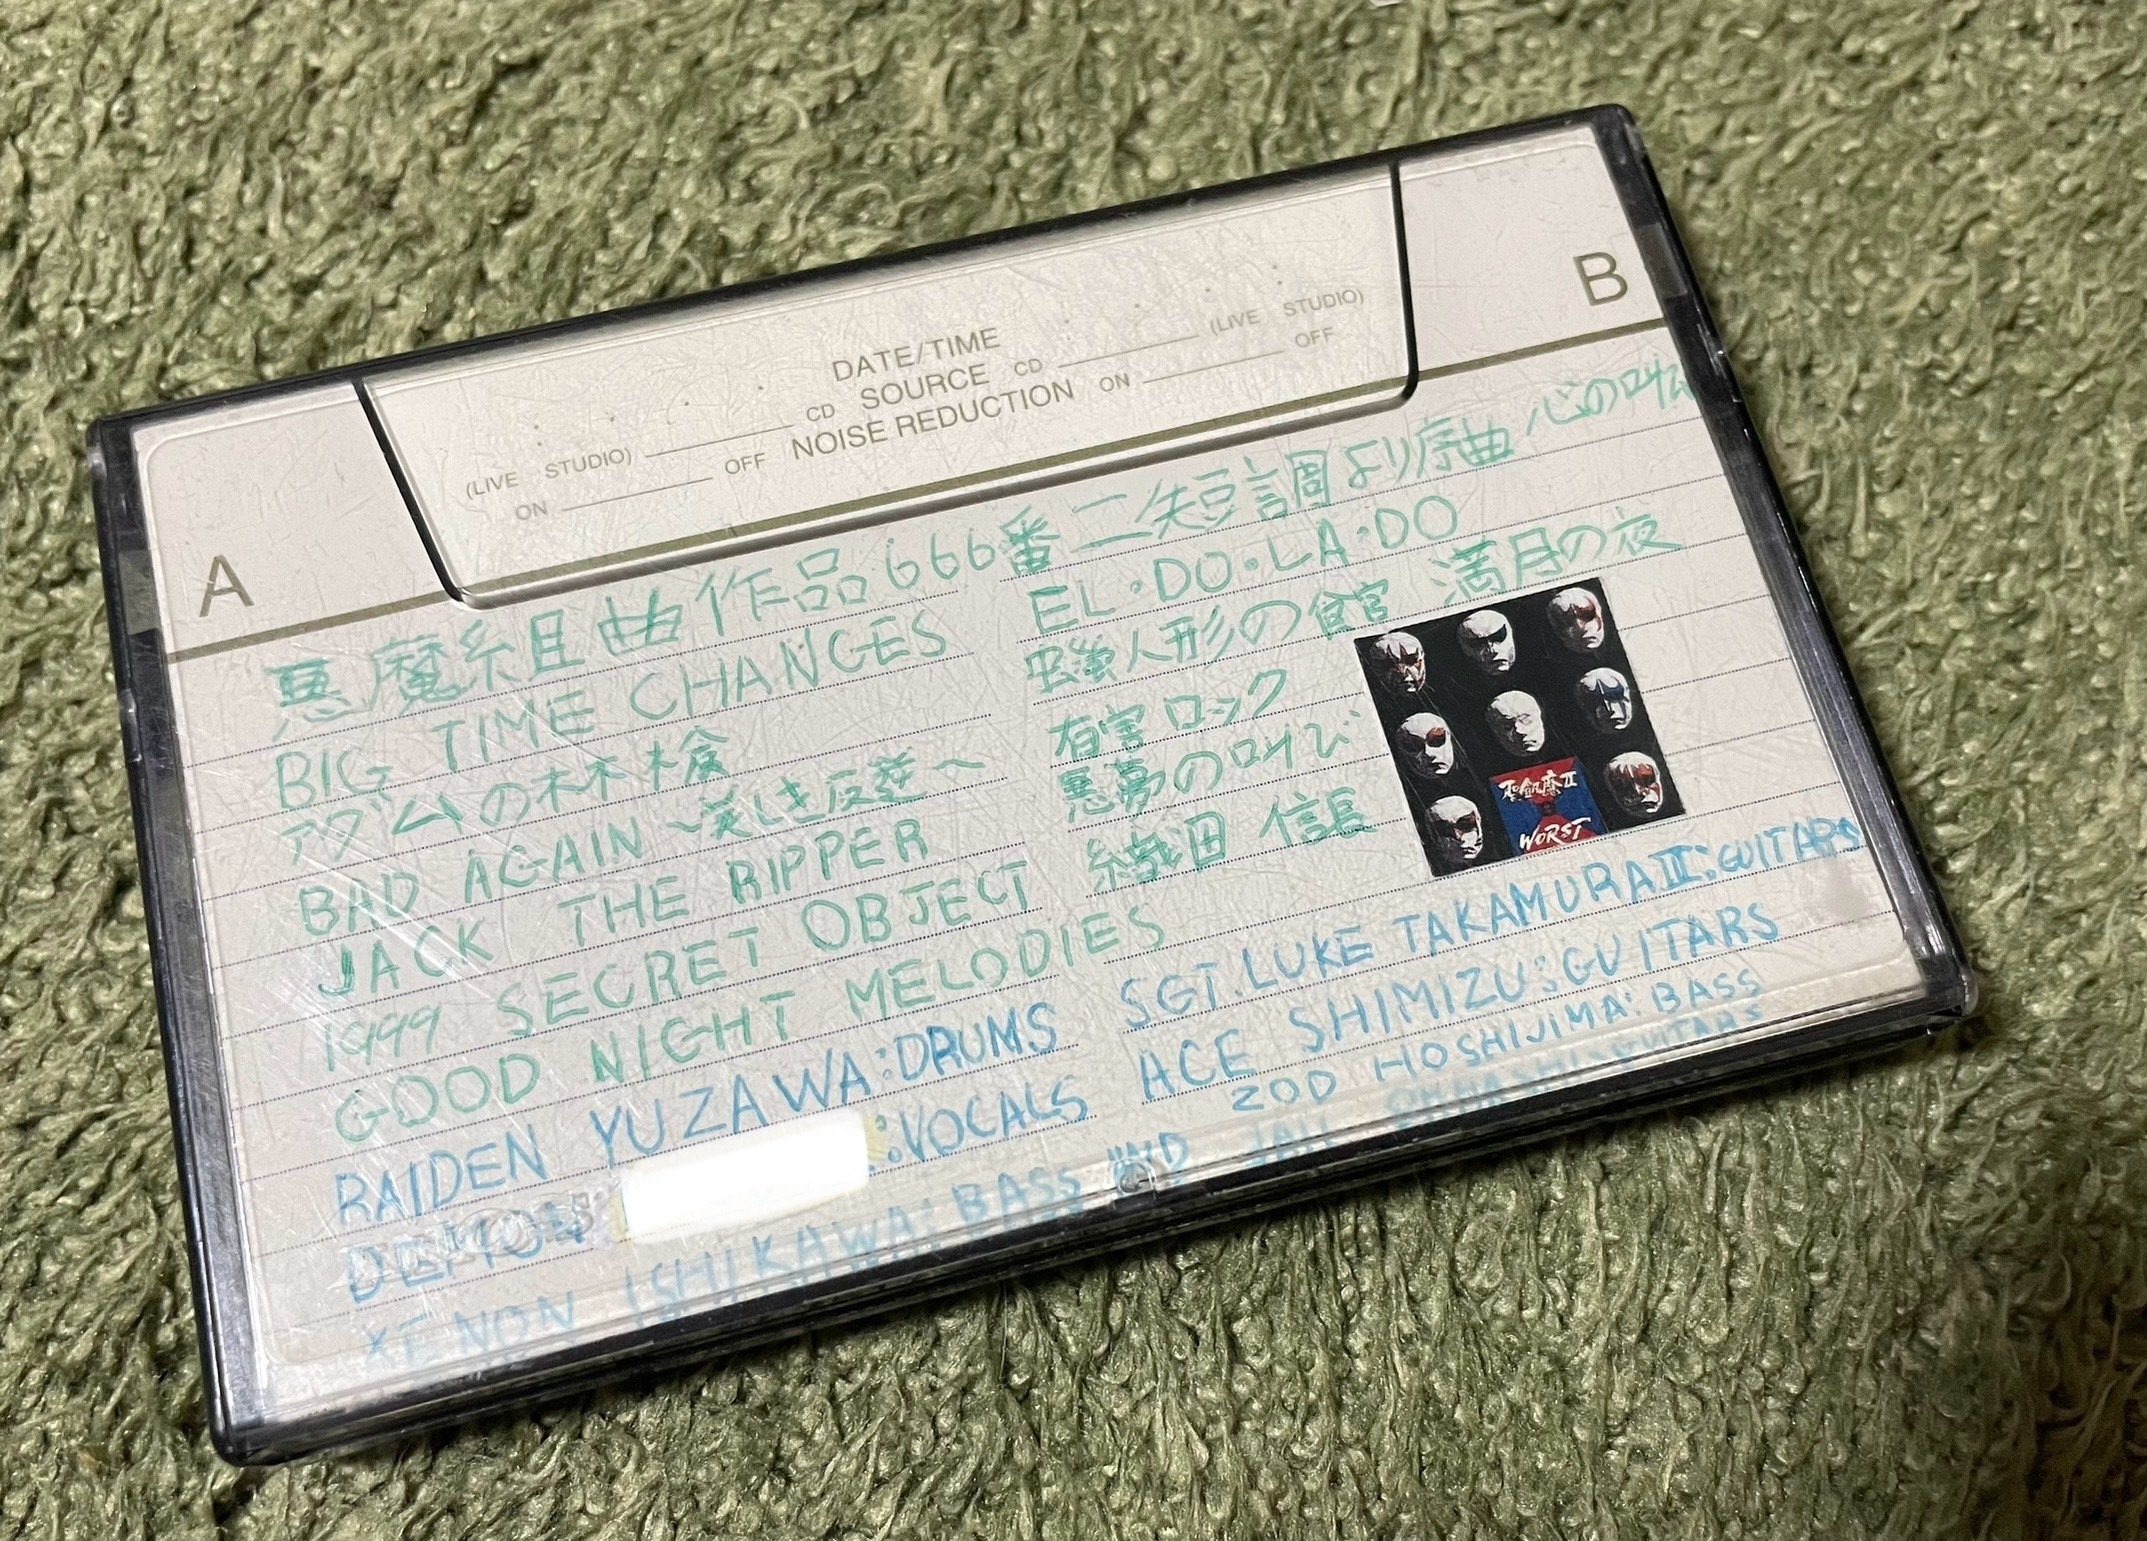 A
B
DATE/TIME
CD SOURCE CD
(LIVE STUDIO)
(LIVE STUDIO)
ON OFF NOISE REDUCTION ON OFF
悪魔組曲作品666番 二矢豆調より序曲 心の叫び
BIG TIME CHANGES
アダムの林檎
BAD AGAIN ～美しき反逆～
JACK THE RIPPER
1999 SECRET OBJECT
GOOD NIGHT MELODIES
EL・DO・LA・DO
人形の館 満月の夜
有害ロック
悪夢の叫び
織田信長
聖飢魔II
WORST
RAIDEN YUZAWA:DRUMS
DEMON :VOCALS
XENON ISHIKAWA:BASS AND
SGT.LUKE TAKAMURAIII:GUITARS
ACE SHIMIZU:GUITARS
ZOD HOSHIJIMA:BASS
JAIL OHHASHI:GUITARS